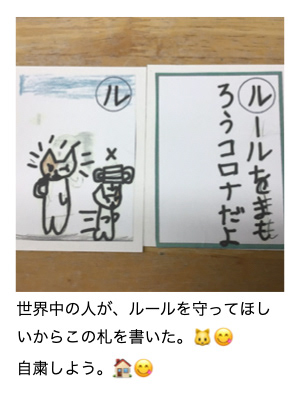 ル
ルールをまも
ろうコロナだよ
世界中の人が、ルールを守ってほし
いからこの札を書いた。🐱😋
自粛しよう。🏠😋